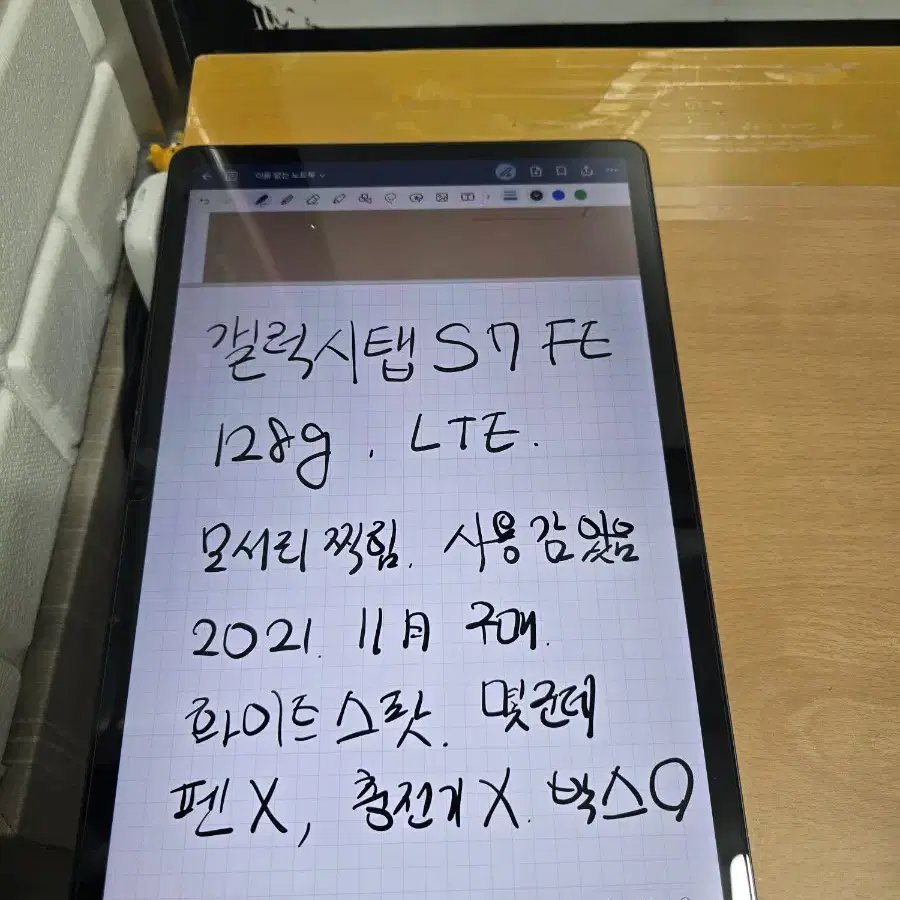 이름 없는 노트북
갤럭시탭 S7 FE
128g. LTE.
모서리 찍힘. 사용감 있음
2021. 11月 구매.
화이트스팟. 몇군데
펜 X, 충전기 X. 박스 O